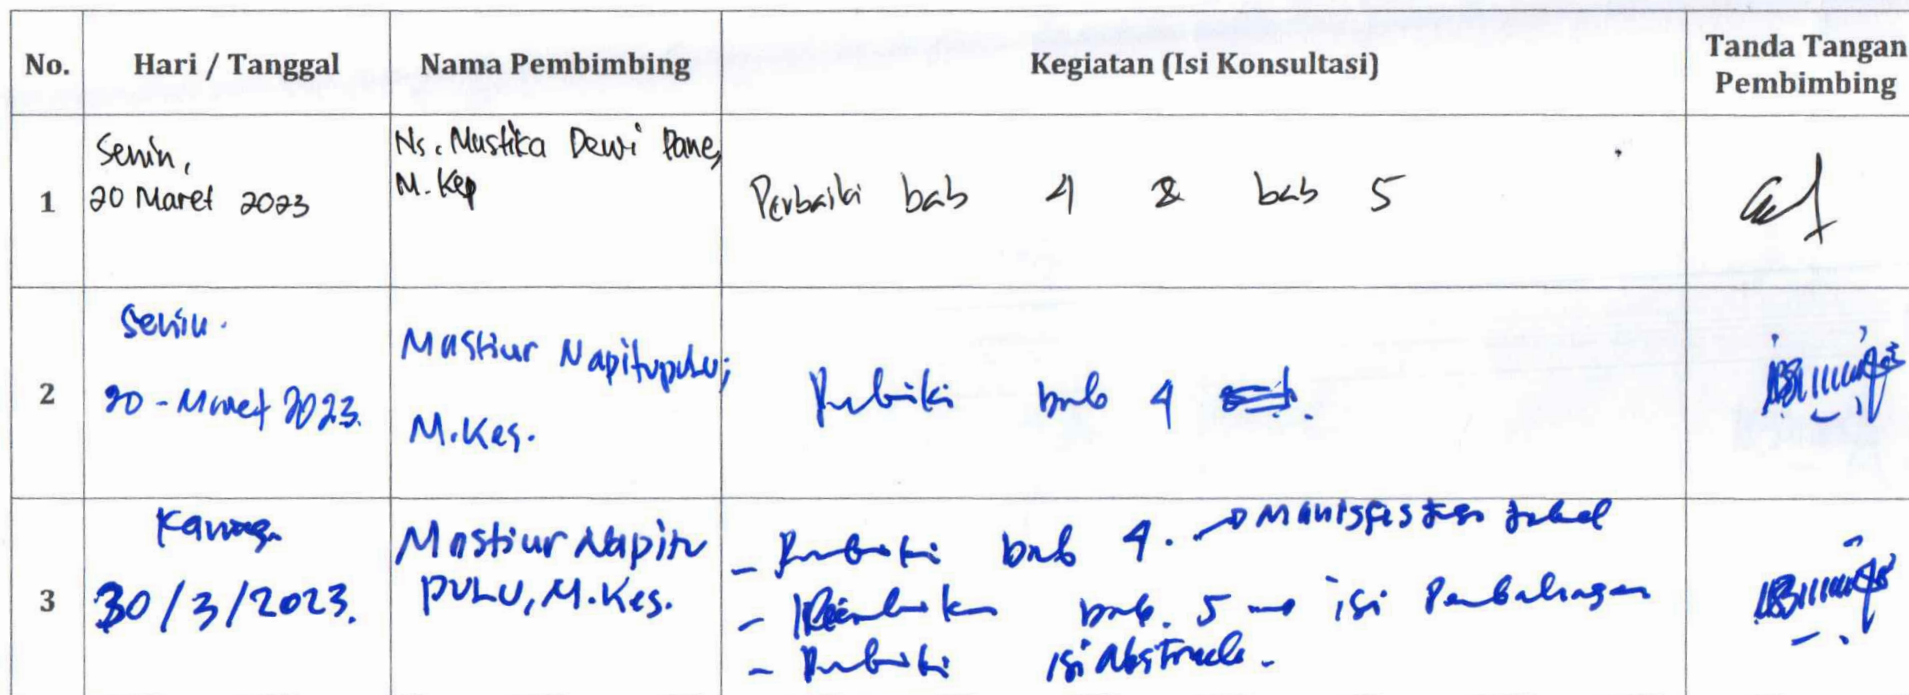 No. Hari / Tanggal Nama Pembimbing Kegiatan (Isi Konsultasi) Tanda Tangan
Pembimbing
1
Senin,
20 Maret 2023
Ns. Mustika Dewi Pane,
M. Kep
Perbaiki bab 4 & bab 5
2
Senin.
20 - Maret 2023.
Mastiur Napitupulu,
M.Kes.
Perbaiki bab 4
3
Kamis
30/3/2023.
Mastiur Napitu
PULU, M.Kes.
- Perbaiki bab 4.
- bab. 5 → isi Pembahasan
- Perbaiki isi Abstrack.